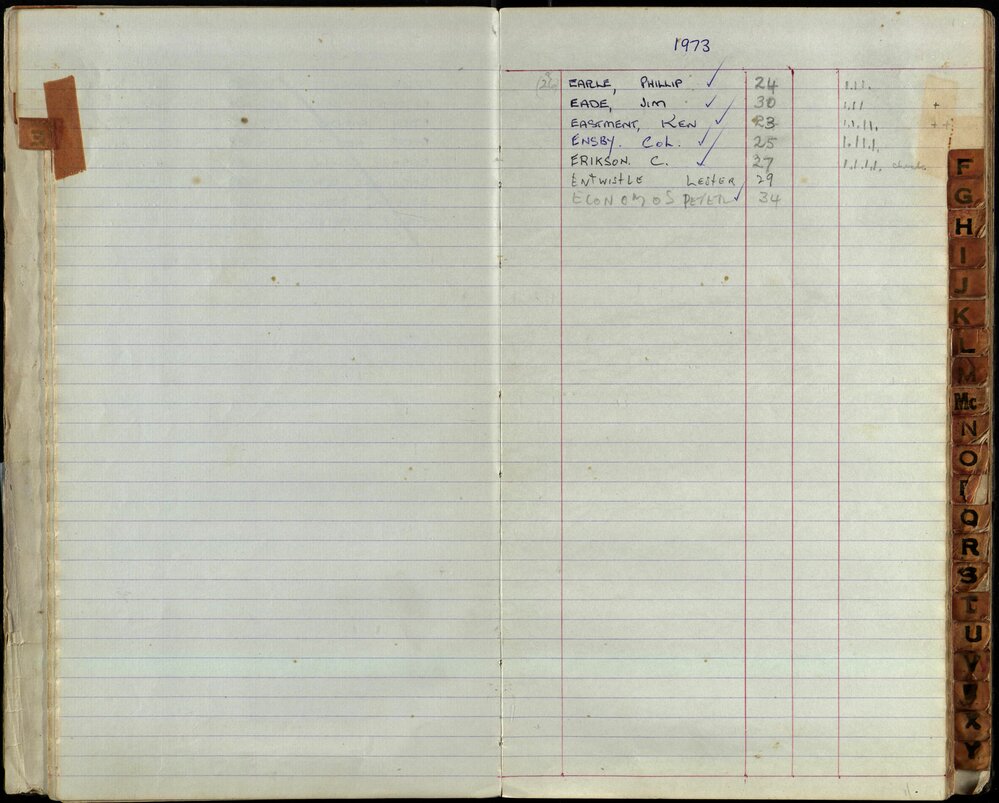 1973
26 EARLE, PHILLIP ✓ 24 1.1.1.
EADE, JIM ✓ 30 1.1.1 +
EASTMENT, KEN ✓ 23 1.1.1.1. ++
ENSBY. COL. ✓ 25 1.1.1.1.
ERIKSON. C. ✓ 27 1.1.1.1.
ENTWISTLE LESTER 29
ECONOMOS PETER ✓ 34
E
F
G
H
I
J
K
L
M
Mc
N
O
P
Q
R
S
T
U
V
X
Y